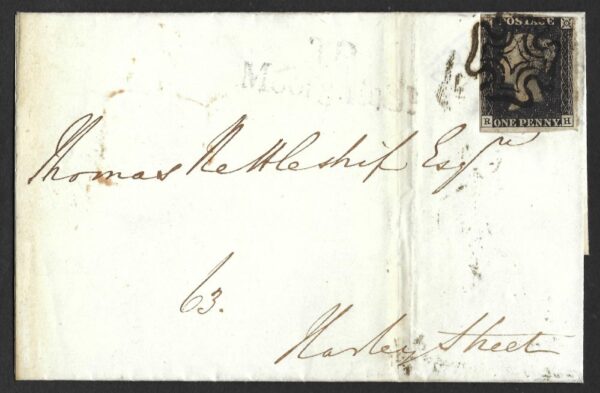 POSTAGE
R H
ONE PENNY
Thomas Nettleship Esqre
63.
Harley Street